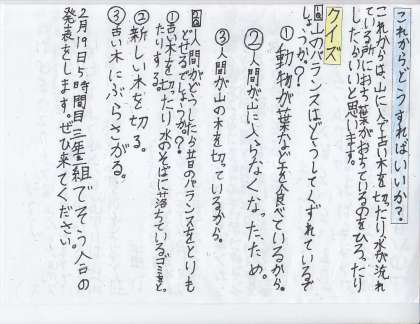 これからどうすればいいか？
これからは、山に入って古い木を切ったり、水が流れ
ている所におち葉がおちているのをひろったり
したらいいと思います。
クイズ
1問 山のバランスはどうしてくずれているで
しょうか？
①動物が葉などを食べているから。
②人間が山に入らなくなったため。
③人間が山の木を切っているから。
2問 人間がどうしたら昔のバランスをとりも
どせるでしょうか？
①古い木を切ったり水のそばに落ちているゴミをと
ったりする。
②新しい木を切る。
③古い木にぶらさがる。
2月19日5時間目三年組でそう合の
発表をします。ぜひ来てください。